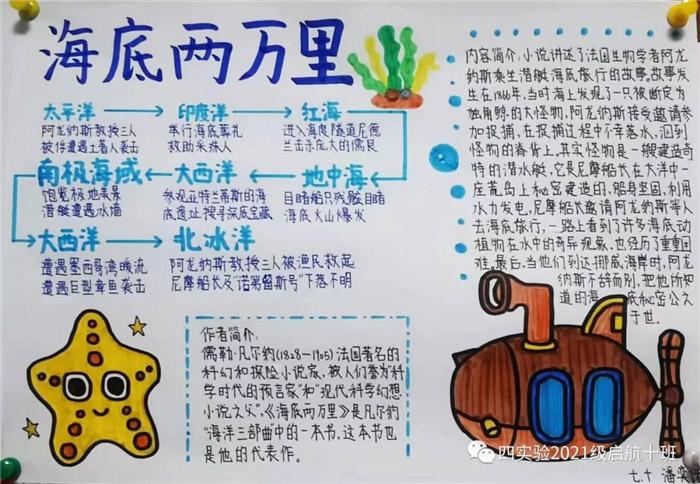 海底两万里
太平洋 印度洋 红海
阿龙纳斯教授三人 举行海底葬礼 进入海底隧道尼德
被俘遭遇土著人袭击 救助采珠人 兰击杀庞大的儒艮
南极海域 大西洋 地中海
饱览极地美景 参观亚特兰蒂斯的海 目睹船只残骸目睹
潜艇遭遇冰墙 底遗址搜寻深底宝藏 海底火山爆发
大西洋 北冰洋
遭遇墨西哥湾暖流 阿龙纳斯教授三人被渔民救起
遭遇巨型章鱼袭击 尼摩船长及“诺第留斯号”下落不明
内容简介:小说讲述了法国生物学者阿龙
纳斯乘坐潜艇海底旅行的故事。故事发
生在1866年,当时海上发现了一只被断定为
独角鲸的大怪物,阿龙纳斯接受邀请参
加捉捕,在捉捕过程中不幸落水,泅到
怪物的脊背上。其实怪物是一艘建造奇
特的潜水艇,它是尼摩船长在大洋中一
座荒岛上秘密建造的,船身坚固,利用
水力发电,尼摩船长邀请阿龙纳斯等人
去海底旅行,一路上看到了许多海底动
植物在水中的奇异景象,也经历了重重困
难。最后,当他们到达挪威海岸时,阿龙
纳斯不辞而别,把他所知
道的海底秘密公之
于世。
作者简介:
儒勒·凡尔纳(1828—1905)法国著名的
科幻和探险小说家,被人们誉为“科
学时代的预言家”和“现代科学幻想
小说之父”,《海底两万里》是凡尔纳
“海洋三部曲”中的一本书,这本书也
是他的代表作。
四实验2021级启航十班
七.十 潘奕